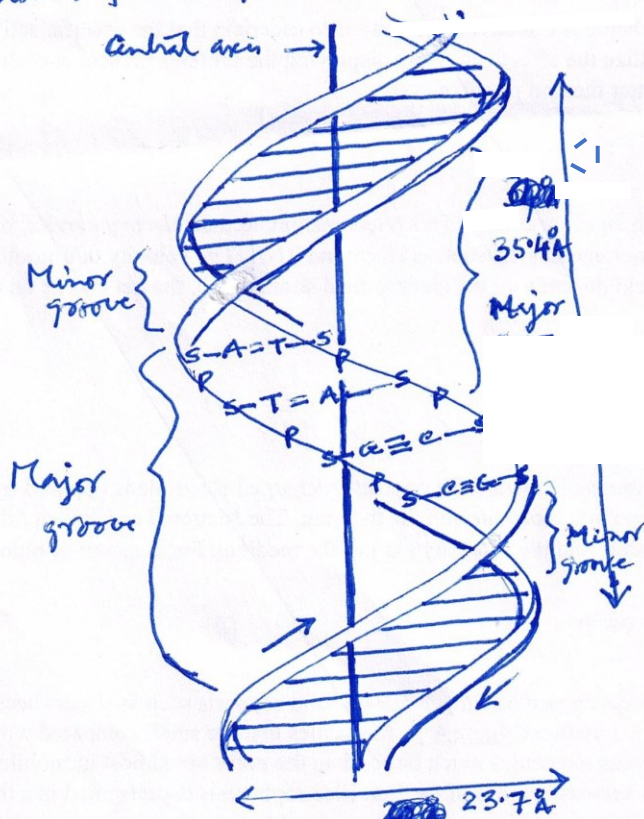 Central axis
35.4Å
Minor
groove
Major
S-A=T-S
P
P
S-T=A-S
P
P
S-G≡C-S
P
S-C≡G-S
Major
groove
Minor
groove
23.7Å